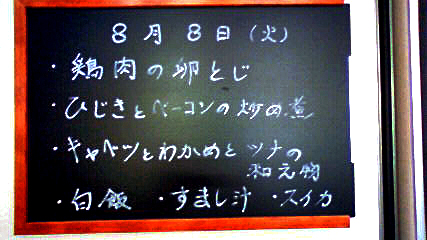 8月8日(火)
・鶏肉の卵とじ
・ひじきとベーコンの炒め煮
・キャベツとわかめとツナの
和え物
・白飯 ・すまし汁 ・スイカ